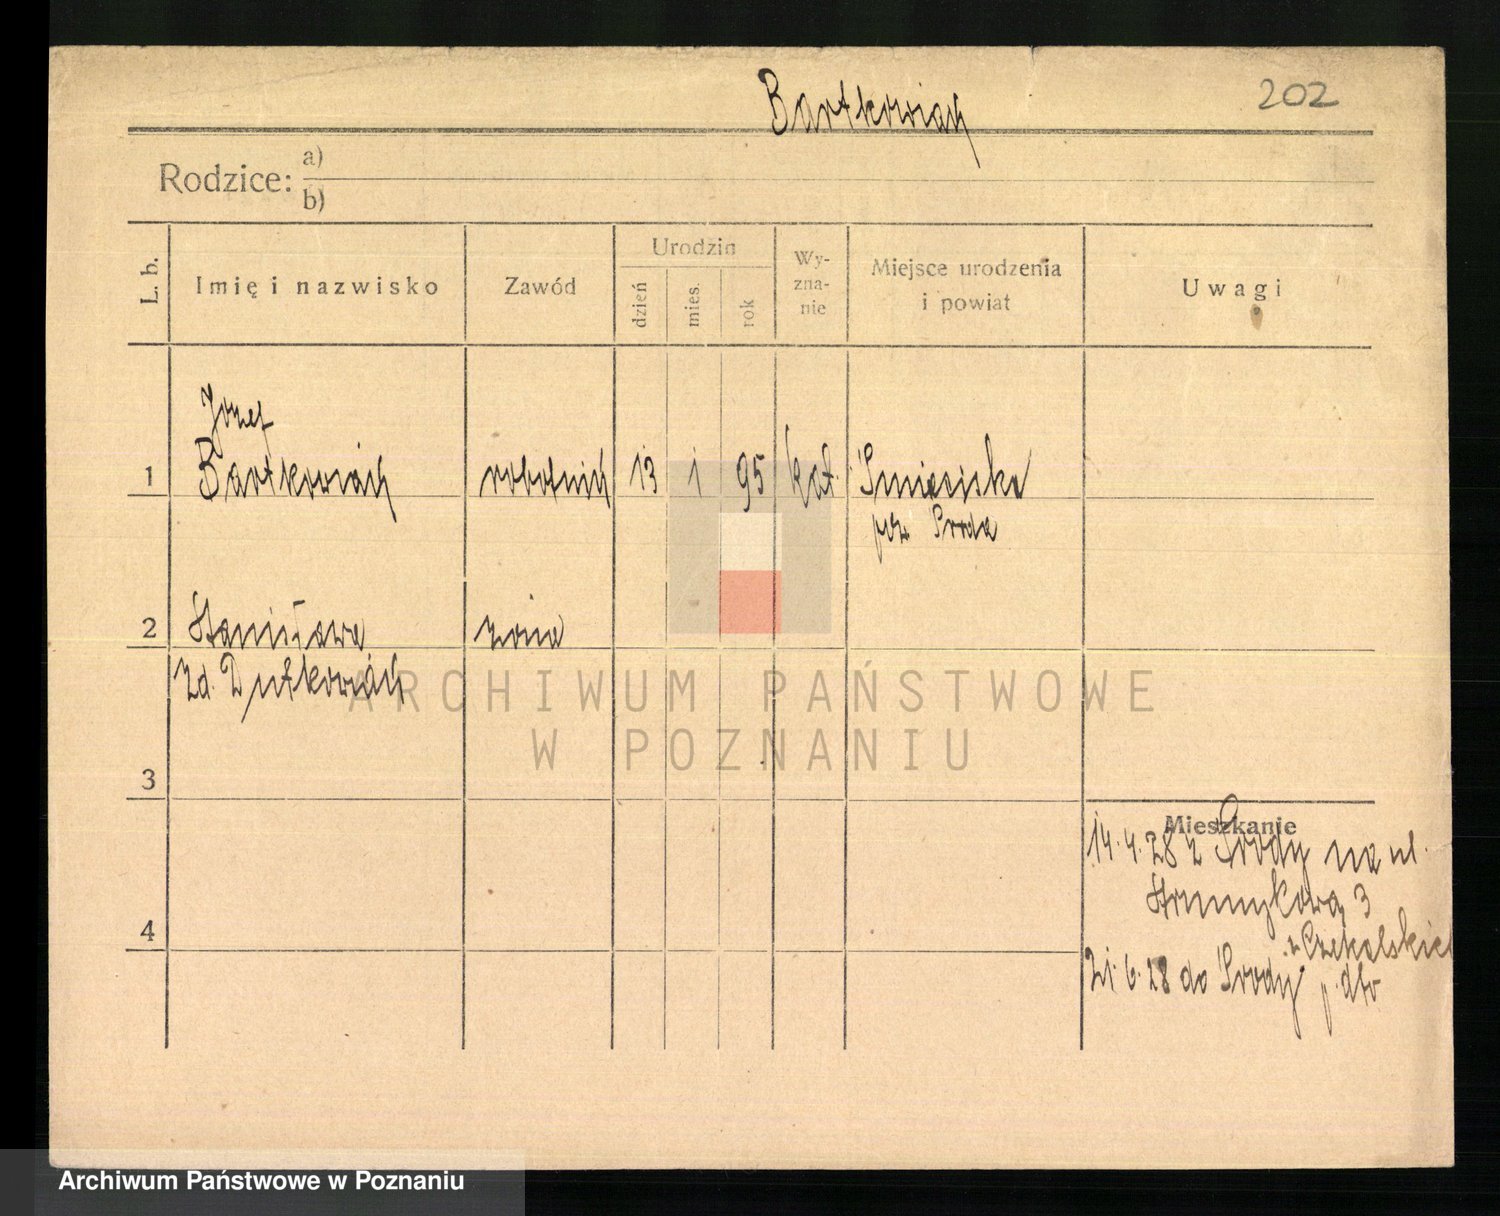 Bartkowiak
202
Rodzice: a)
b)
L. b.
Imię i nazwisko
Zawód
Urodzin
dzień
mies.
rok
Wy-
zna-
nie
Miejsce urodzenia
i powiat
Uwagi
Józef
1 Bartkowiak robotnik 13 1 95 kat.
pow Środa
2 Stanisława żona
zd. Dutkowiak
3
Mieszkanie
14.4.28 z Środy na ul.
Strumykową 3
4
21.6.28 do Środy
ARCHIWUM PAŃSTWOWE
W POZNANIU
Archiwum Państwowe w Poznaniu